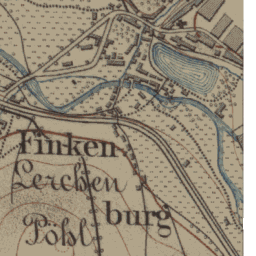 Finken
Lerchen
burg
Pöhl